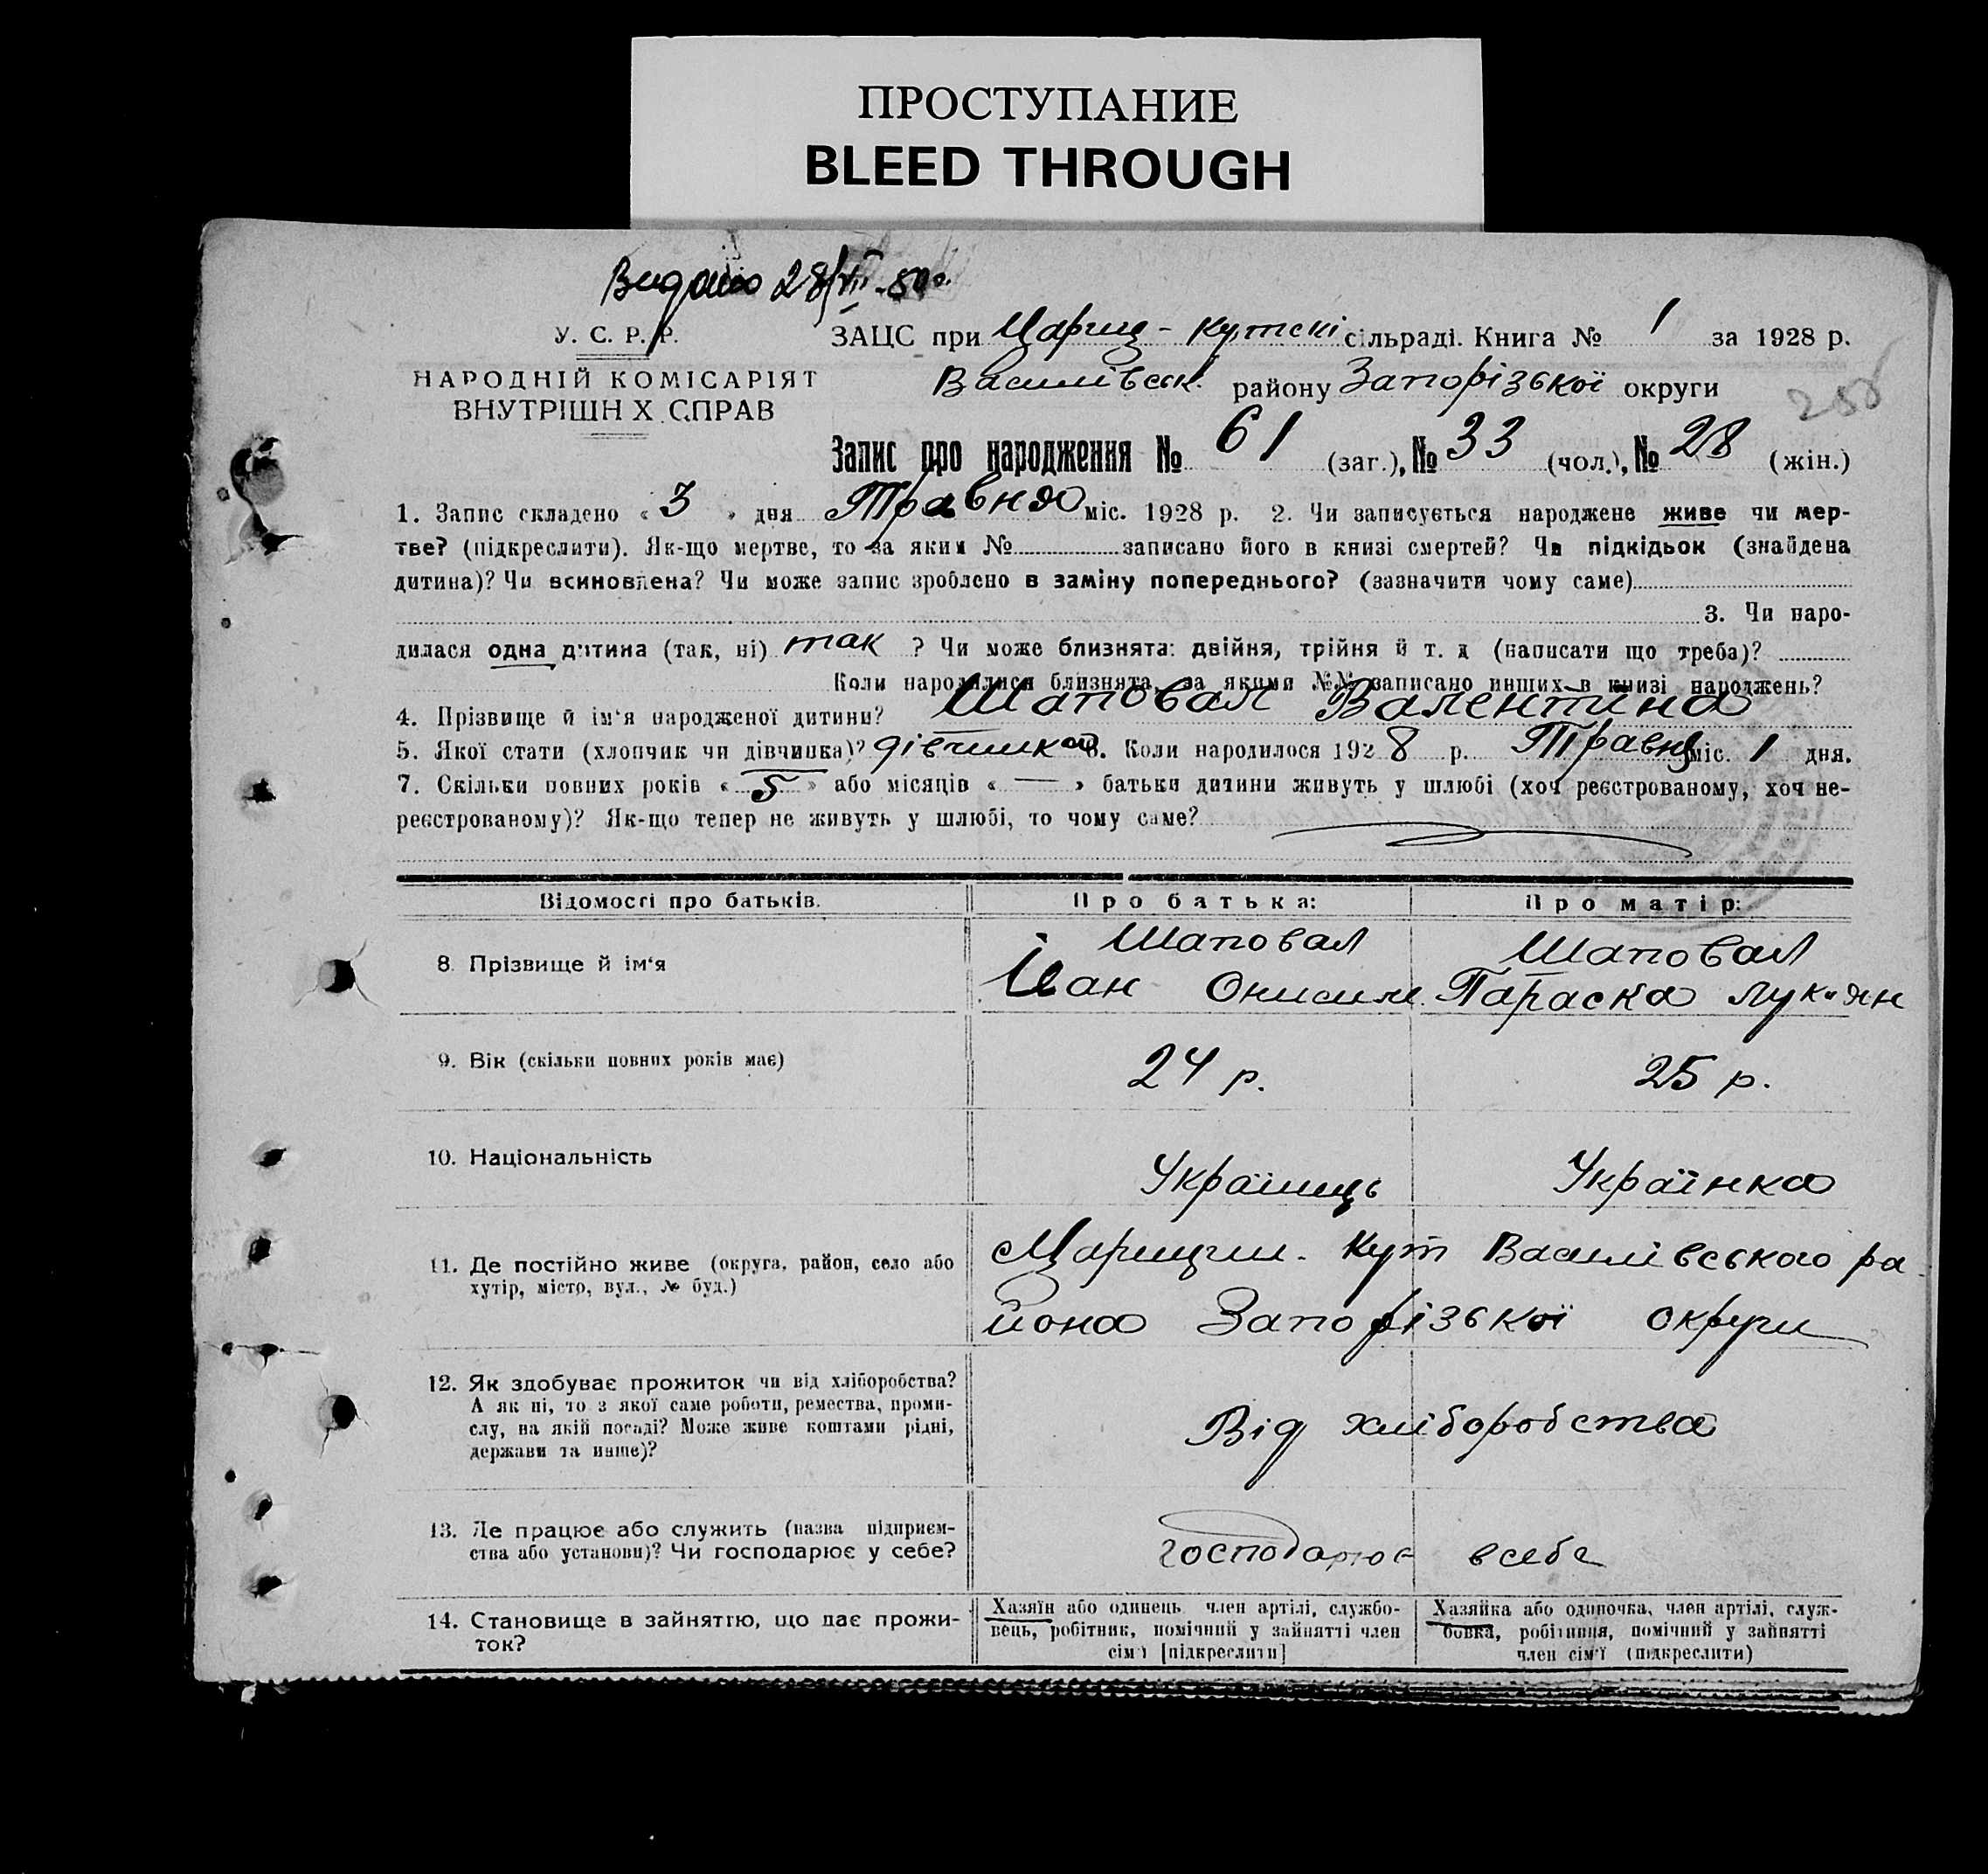 ПРОСТУПАНИЕ
BLEED THROUGH
Видано 28/VII-50 г.
У. С. Р. Р.
НАРОДНІЙ КОМІСАРІЯТ
ВНУТРІШН Х СПРАВ
ЗАЦС при Цариц-Кутскі сільраді. Книга № 1 за 1928 р.
Василівськ. району Запорізької округи
Запис про народження № 61 (заг.), № 33 (чол.), № 28 (жін.)
1. Запис складено « 3 » дня Травня міс. 1928 р. 2. Чи записується народжене живе чи мер-
тве? (підкреслити). Як-що мертве, то за яким № записано його в книзі смертей? Чи підкідьок (знайдена
дитина)? Чи всиновлена? Чи може запис зроблено в заміну попереднього? (зазначити чому саме)
3. Чи наро-
дилася одна дитина (так, ні) так ? Чи може близнята: двійня, трійня й т. д (написати що треба)?
Коли народилися близнята, за якими №№ записано инших в книзі народжень?
4. Прізвище й ім'я народженої дитини? Шаповал Валентина
5. Якої стати (хлопчик чи дівчинка)? дівчинка 6. Коли народилося 1928 р. Травня міс. 1 дня.
7. Скільки повних років « 5 » або місяців « — » батьки дитини живуть у шлюбі (хоч реєстрованому, хоч не-
реєстрованому)? Як-що тепер не живуть у шлюбі, то чому саме?
Відомості про батьків. Про батька: Про матір:
8. Прізвище й ім'я Шаповал Іван Онисим. Шаповал Параска Лук'ян
9. Вік (скільки повних років має) 24 р. 25 р.
10. Національність Українець Українка
11. Де постійно живе (округа, район, село або
хутір, місто, вул., № буд.)
Царицин. Кут Василівського ра-
йона Запорізької округи
12. Як здобуває прожиток чи від хліборобства?
А як ні, то з якої саме роботи, ремества, проми-
слу, на якій посаді? Може живе коштами рідні,
держави та инше)?
Від хліборобства
13. Де працює або служить (назва підприєм-
ства або установи)? Чи господарює у себе?
господарює всебе
14. Становище в зайняттю, що дає прожи-
ток?
Хазяїн або одинець член артілі, службо-
вець, робітник, помічний у зайнятті член
сім'ї [підкреслити]
Хазяйка або одиночка, член артілі, служ-
бовка, робітниця, помічний у зайнятті
член сім'ї (підкреслити)